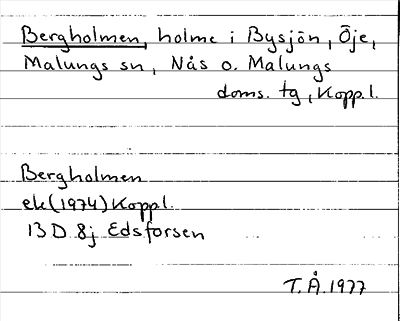 Bergholmen, holme i Bysjön, Öje,
Malungs sn, Nås o. Malungs
doms. tg, Koppl.
Bergholmen
ek (1974) Koppl.
13 D 8j Edsforsen
T.Å. 1977